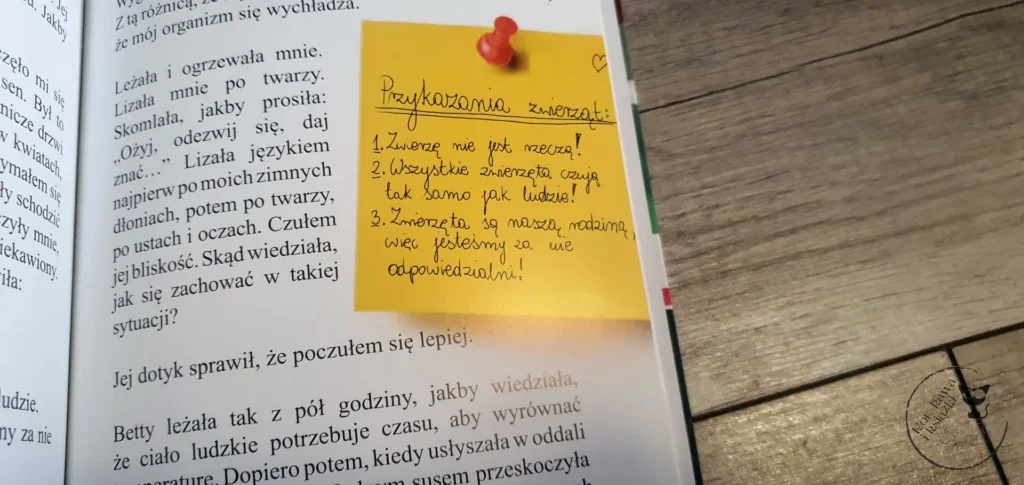 Jakby
mi się
sen. Był to
drzwi
w kwiatach.
się
schodzić
mnie,
udzie.
ny za nie
Z tą różnicą, że
że mój organizm się wychładza.
Leżała i ogrzewała mnie.
Lizała mnie po twarzy.
Skomlała, jakby prosiła:
„Ożyj, odezwij się, daj
znać…” Lizała językiem
najpierw po moich zimnych
dłoniach, potem po twarzy,
po ustach i oczach. Czułem
jej bliskość. Skąd wiedziała,
jak się zachować w takiej
sytuacji?
Przykazania zwierząt:
1. Zwierzę nie jest rzeczą!
2. Wszystkie zwierzęta czują
tak samo jak ludzie!
3. Zwierzęta są naszą rodziną,
więc jesteśmy za nie
odpowiedzialni!
Jej dotyk sprawił, że poczułem się lepiej.
Betty leżała tak z pół godziny, jakby wiedziała,
że ciało ludzkie potrzebuje czasu, aby wyrównać
Dopiero potem, kiedy usłyszała w oddali
susem przeskoczyła